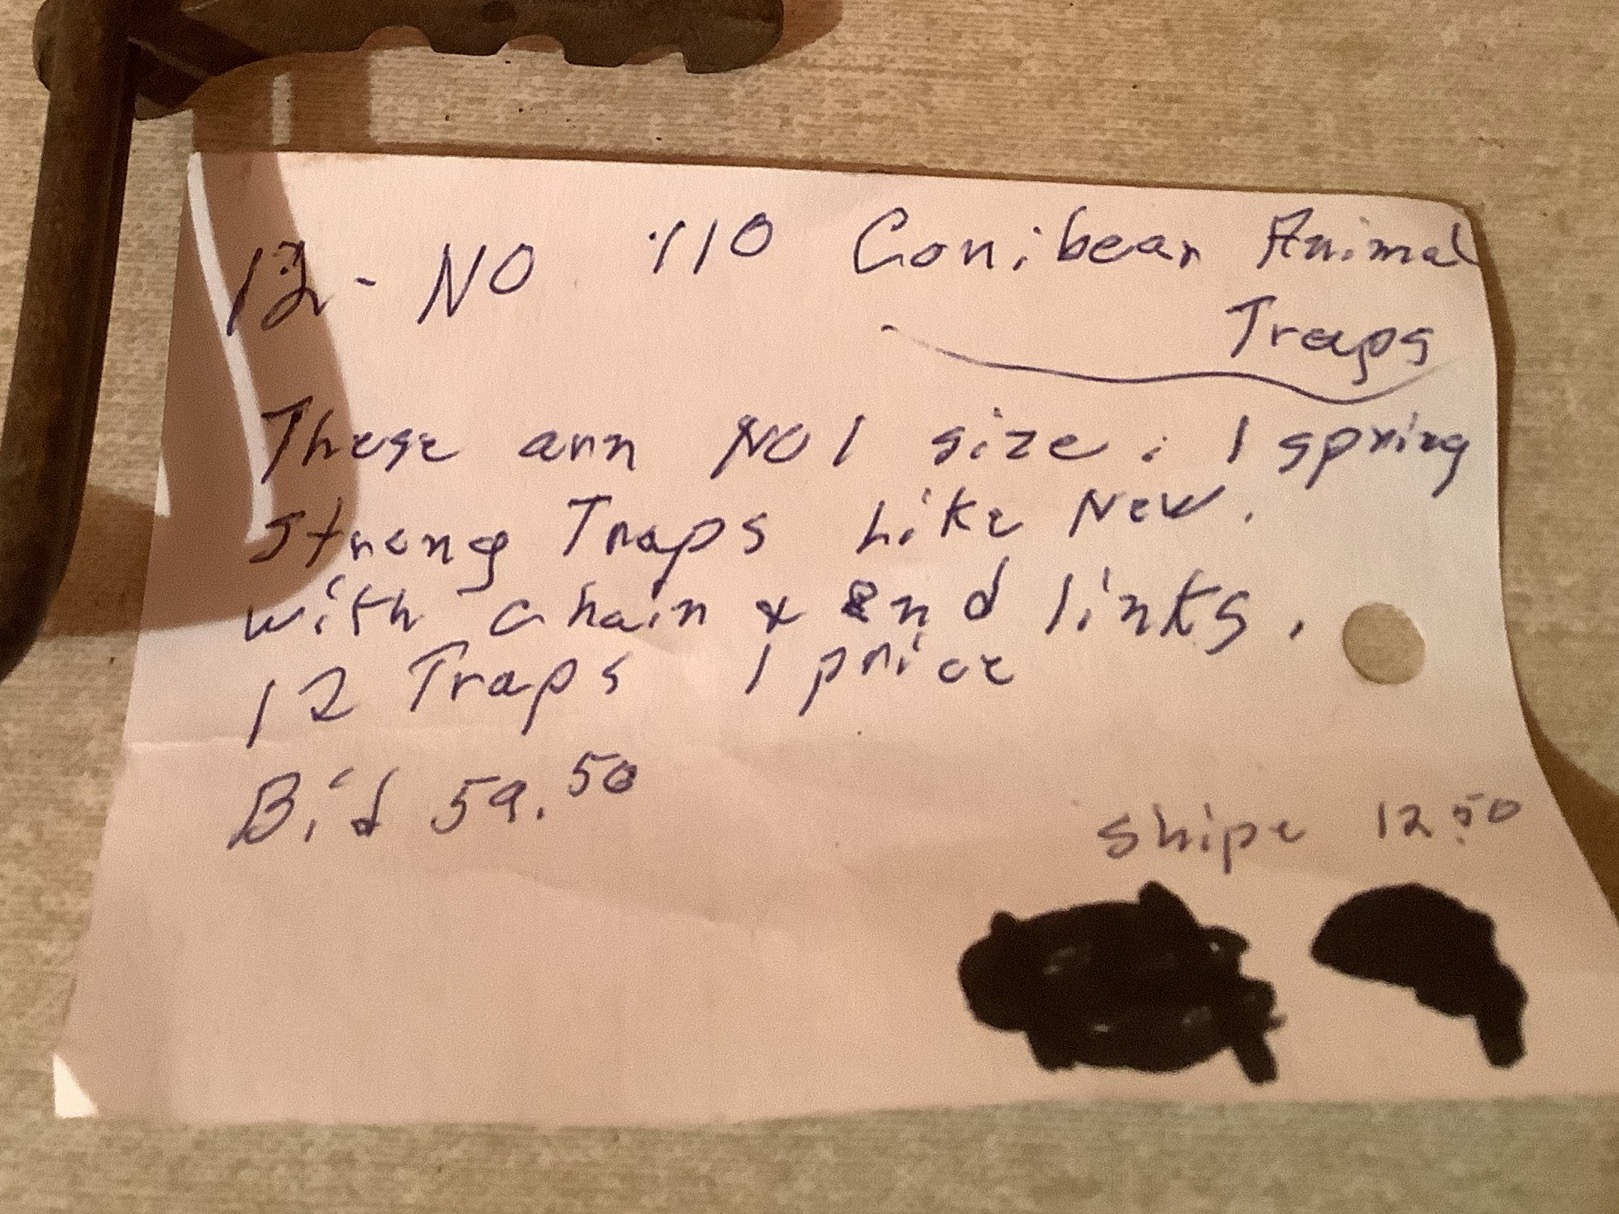 12 - NO. 110 Conibear Animal
Traps
These are NO1 size. 1 spring
strong Traps Like New.
with chain & End links.
12 Traps 1 price
Bid 59.50
Shipe 12.50